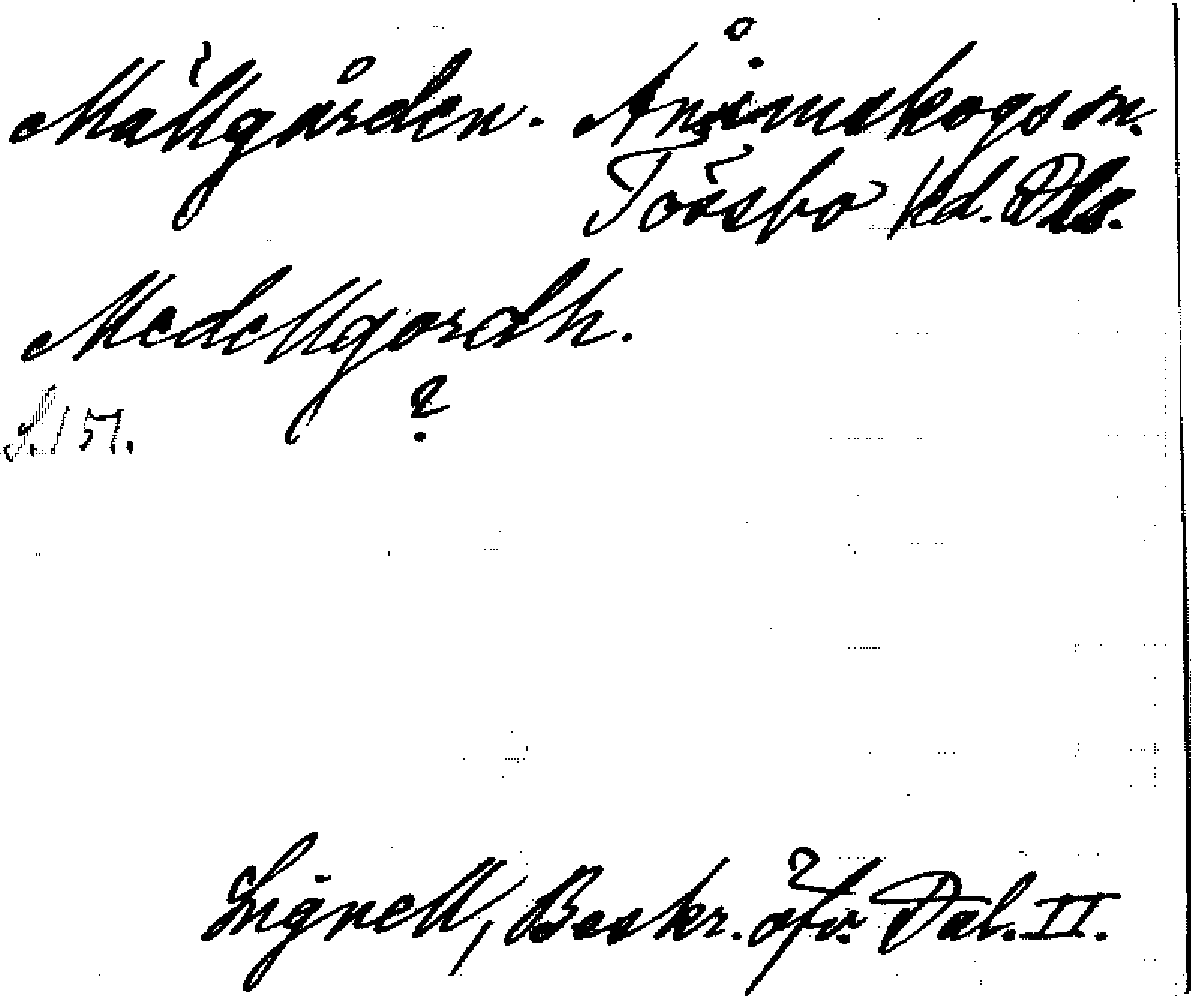 Mällgården. Ånimskogs sn.
Tössbo hd. Dls.
Medellgordh.
S. 151. ?
Lignell, Beskr. öfv. Dal. II.